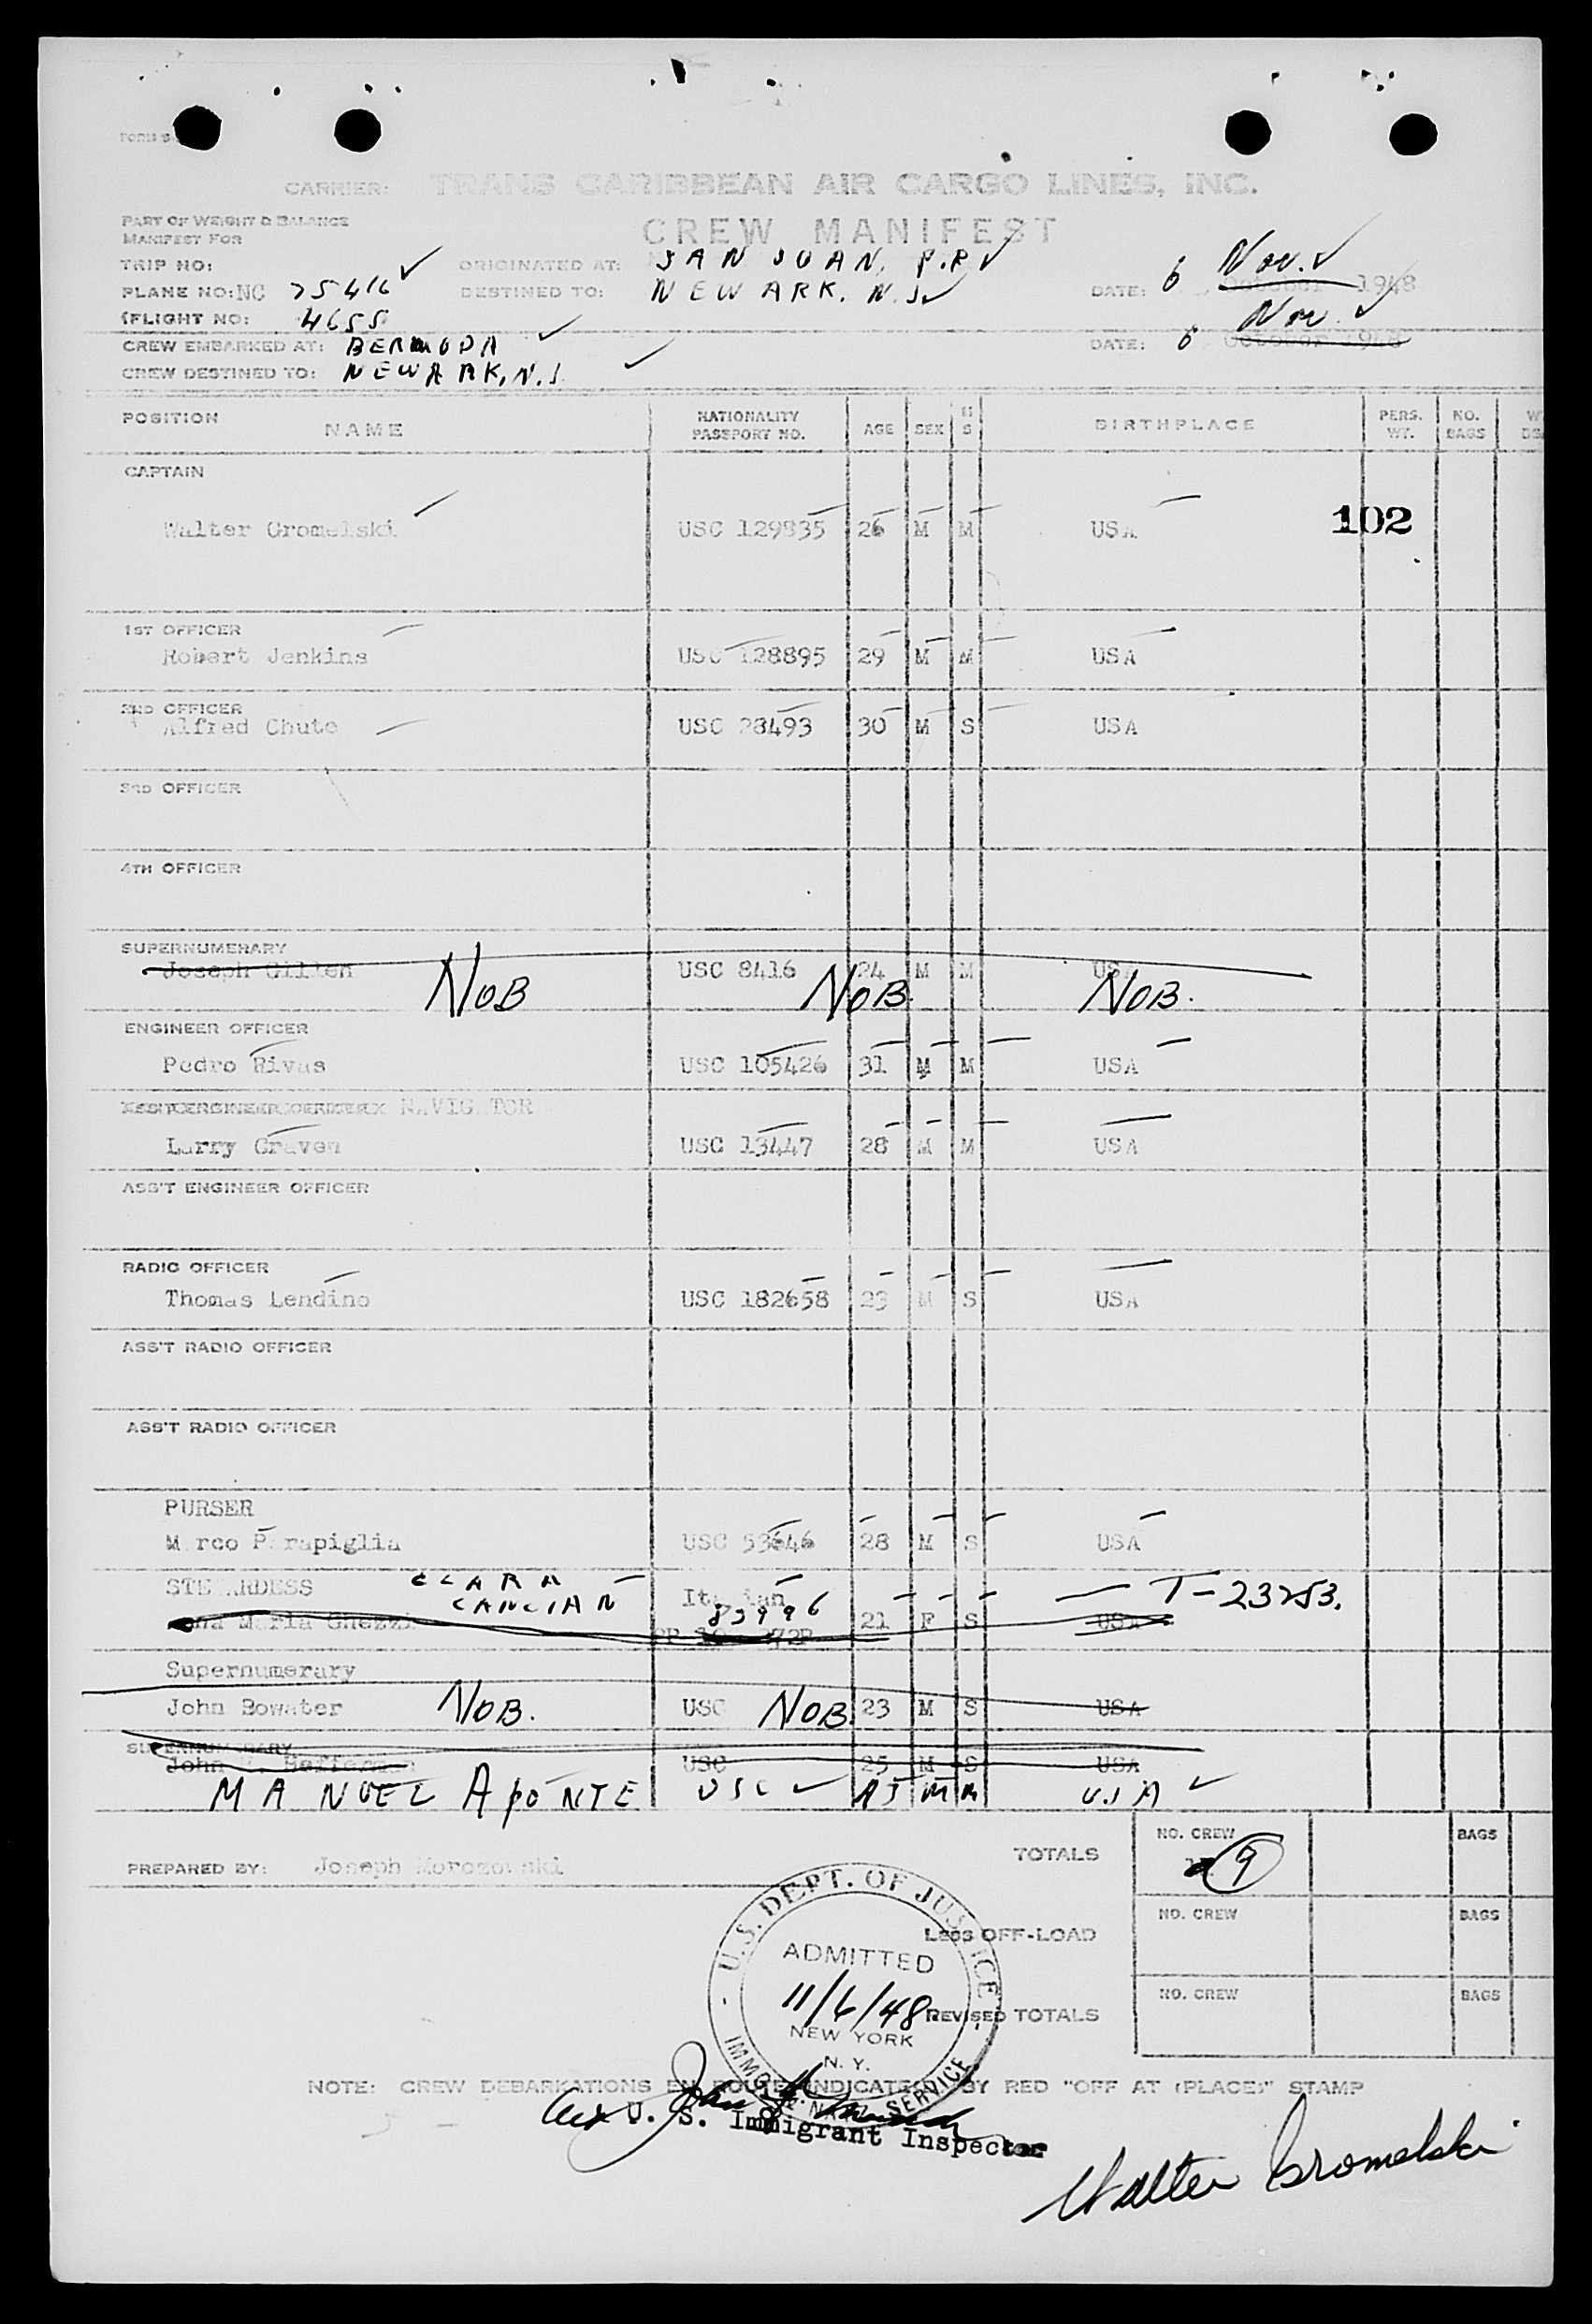 FORM
CARRIER: TRANS CARIBBEAN AIR CARGO LINES, INC.
PART OF WEIGHT & BALANCE
MANIFEST FOR
CREW MANIFEST
TRIP NO: ORIGINATED AT: SAN JUAN, P.R
PLANE NO: NC 75416 DESTINED TO: NEWARK. N.J DATE: 6 Nov. October 1948
(FLIGHT NO: 4655
CREW EMBARKED AT: BERMUDA DATE: 6 Nov October 1948
CREW DESTINED TO: NEWARK, N.J.
POSITION NAME NATIONALITY PASSPORT NO. AGE SEX M S BIRTHPLACE PERS. WT. NO. BAGS
CAPTAIN
Walter Gromelski USC 129835 26 M M USA 102
1ST OFFICER
Robert Jenkins USC 128895 29 M M USA
2ND OFFICER
Alfred Chute USC 28493 30 M S USA
3RD OFFICER
4TH OFFICER
SUPERNUMERARY
Joseph Gillen USC 8416 24 M M USA
NOB NOB. NOB.
ENGINEER OFFICER
Pedro Rivas USC 105426 31 M M USA
NAVIGATOR
Larry Graven USC 13447 28 M M USA
ASS'T ENGINEER OFFICER
RADIO OFFICER
Thomas Lendino USC 182658 23 M S USA
ASS'T RADIO OFFICER
ASS'T RADIO OFFICER
PURSER
Marco Parapiglia USC 53646 28 M S USA
STEWARDESS CLARA CANCIAN Italian 83996 T-23253.
Maria Ghezzi PP 21 F S USA
Supernumerary
John Bowater NOB. USC NOB. 23 M S USA
SUPERNUMERARY
John Heffernan USC 25 M S USA
MANUEL APONTE USC M M U.S A
PREPARED BY: Joseph Morozowski
TOTALS NO. CREW 9 BAGS
LESS OFF-LOAD NO. CREW BAGS
REVISED TOTALS NO. CREW BAGS
U.S. DEPT. OF JUSTICE
ADMITTED
11/6/48
NEW YORK
N. Y.
SERVICE
NOTE: CREW DEBARKATIONS EN ROUTE INDICATED BY RED "OFF AT (PLACE)" STAMP
U. S. Immigrant Inspector
Walter Gromelski